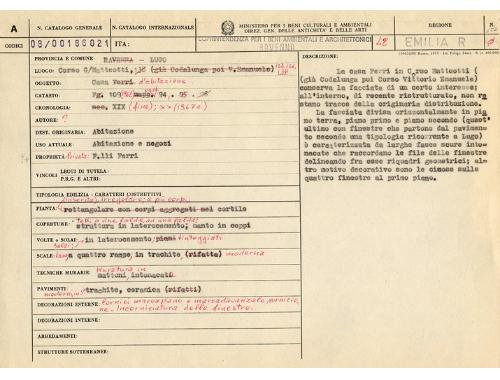 A
N. CATALOGO GENERALE
N. CATALOGO INTERNAZIONALE
MINISTERO PER I BENI CULTURALI E AMBIENTALI
DIREZ. GEN. DELLE ANTICHITA' E BELLE ARTI
REGIONE
N.
CODICI
08/00186021
ITA:
SOPRINTENDENZA PER I BENI AMBIENTALI E ARCHITETTONICI
RAVENNA
EMILIA R
PROVINCIA E COMUNE: RAVENNA - LUGO
LUOGO: Corso G/Matteotti, (già Codalunga poi V.Emanuele)
OGGETTO: Casa Ferri d'abitazione
CATASTO: Fg. 109 mapp. 94 . 95 .
CRONOLOGIA: sec. XIX (fine);
AUTORE: ?
DEST. ORIGINARIA: Abitazione
USO ATTUALE: Abitazione e negozi
PROPRIETÀ: Privata: F.lli Ferri
VINCOLI
LEGGI DI TUTELA:
P.R.G. E ALTRI:
TIPOLOGIA EDILIZIA - CARATTERI COSTRUTTIVI
PIANTA: rettangolare con corpi aggregati nel cortile
COPERTURE: struttura in laterocemento; manto in coppi
VOLTE o SOLAI: in laterocemento piani tinteggiati
SCALE: a quattro rampe, in trachite (rifatta) moderna
TECNICHE MURARIE: Muratura in
mattoni intonacati
PAVIMENTI: trachite, ceramica (rifatti)
moderni in
DECORAZIONI ESTERNE: Cornici marcapiano e marcadavanzale, cornicio
ne. Incorniciatura delle finestre.
DECORAZIONI INTERNE:
ARREDAMENTI:
STRUTTURE SOTTERRANEE:
DESCRIZIONE:
La casa Ferri in C.rso Matteotti (
già Codalunga poi Corso Vittorio Emanuele)
conserva la facciata di un certo interesse;
all'interno, di recente ristrutturato, non re
stano tracce della originaria distribuzione.
La facciata divisa orizzontalmente in pia
no terra, piano primo e piano secondo (quest'
ultimo con finestre che partono dal pavimen
to secondo una tipologia ricorrente a Lugo)
è caratterizzata da larghe fasce scure into-
nacate che raccordano le file delle finestre
delineando fra esse riquadri geometrici; al-
tro motivo decorativo sono le cimose sulle
quattro finestre al primo piano.